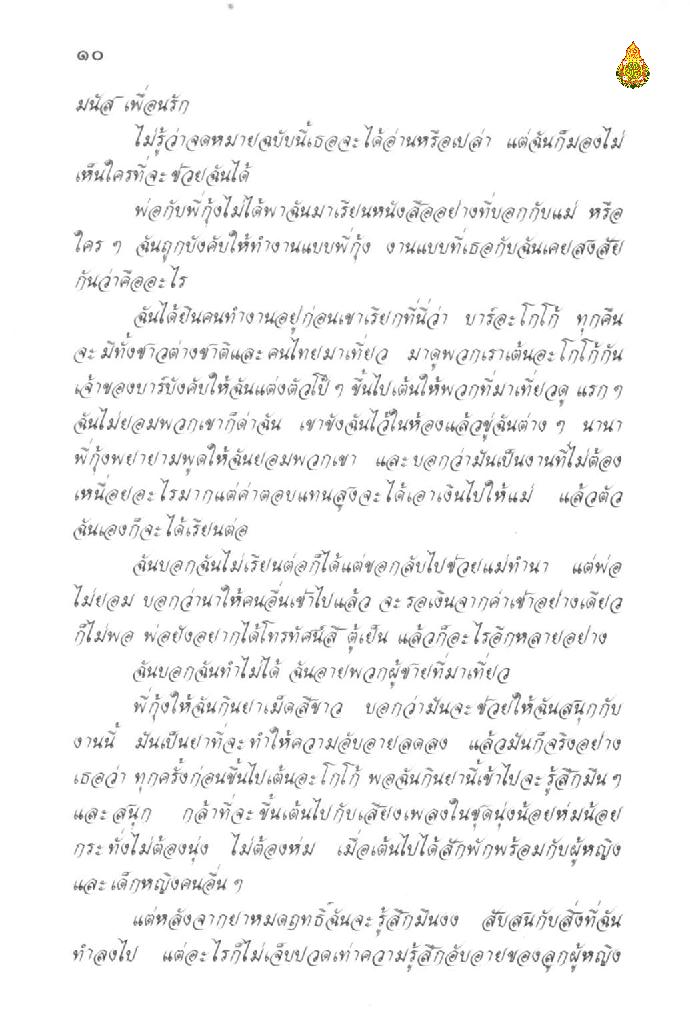 ๑๐
มนัส เพื่อนรัก
ไม่รู้ว่าจดหมายฉบับนี้เธอจะได้อ่านหรือเปล่า แต่ฉันก็มองไม่
เห็นใครที่จะช่วยฉันได้
พ่อกับพี่กุ้งไม่ได้พาฉันมาเรียนหนังสืออย่างที่บอกกับแม่ หรือ
ใคร ๆ ฉันถูกบังคับให้ทำงานแบบพี่กุ้ง งานแบบที่เธอกับฉันเคยสงสัย
กันว่าคืออะไร
ฉันได้ยินคนทำงานอยู่ก่อนเขาเรียกที่นี่ว่า บาร์อะโกโก้ ทุกคืน
จะมีทั้งชาวต่างชาติและคนไทยมาเที่ยว มาดูพวกเราเต้นอะโกโก้กัน
เจ้าของบาร์บังคับให้ฉันแต่งตัวโป๊ ๆ ขึ้นไปเต้นให้พวกที่มาเที่ยวดู แรก ๆ
ฉันไม่ยอมพวกเขาก็ด่าฉัน เขาขังฉันไว้ในห้องแล้วขู่ฉันต่าง ๆ นานา
พี่กุ้งพยายามพูดให้ฉันยอมพวกเขา และบอกว่ามันเป็นงานที่ไม่ต้อง
เหนื่อยอะไรมากแต่ค่าตอบแทนสูงจะได้เอาเงินไปให้แม่ แล้วตัว
ฉันเองก็จะได้เรียนต่อ
ฉันบอกฉันไม่เรียนต่อก็ได้แต่ขอกลับไปช่วยแม่ทำนา แต่พ่อ
ไม่ยอม บอกว่านาให้คนอื่นเช่าไปแล้ว จะรอเงินจากค่าเช่าอย่างเดียว
ก็ไม่พอ พ่อยังอยากได้โทรทัศน์สี ตู้เย็น แล้วก็อะไรอีกหลายอย่าง
ฉันบอกฉันทำไม่ได้ ฉันอายพวกผู้ชายที่มาเที่ยว
พี่กุ้งให้ฉันกินยาเม็ดสีขาว บอกว่ามันจะช่วยให้ฉันสนุกกับ
งานนี้ มันเป็นยาที่จะทำให้ความอับอายลดลง แล้วมันก็จริงอย่าง
เธอว่า ทุกครั้งก่อนขึ้นไปเต้นอะโกโก้ พอฉันกินยานี้เข้าไปจะรู้สึกมึน ๆ
และสนุก กล้าที่จะขึ้นเต้นไปกับเสียงเพลงในชุดนุ่งน้อยห่มน้อย
กระทั่งไม่ต้องนุ่ง ไม่ต้องห่ม เมื่อเต้นไปได้สักพักพร้อมกับผู้หญิง
และเด็กหญิงคนอื่น ๆ
แต่หลังจากยาหมดฤทธิ์ฉันจะรู้สึกมึนงง สับสนกับสิ่งที่ฉัน
ทำลงไป แต่อะไรก็ไม่เจ็บปวดเท่าความรู้สึกอับอายของลูกผู้หญิง